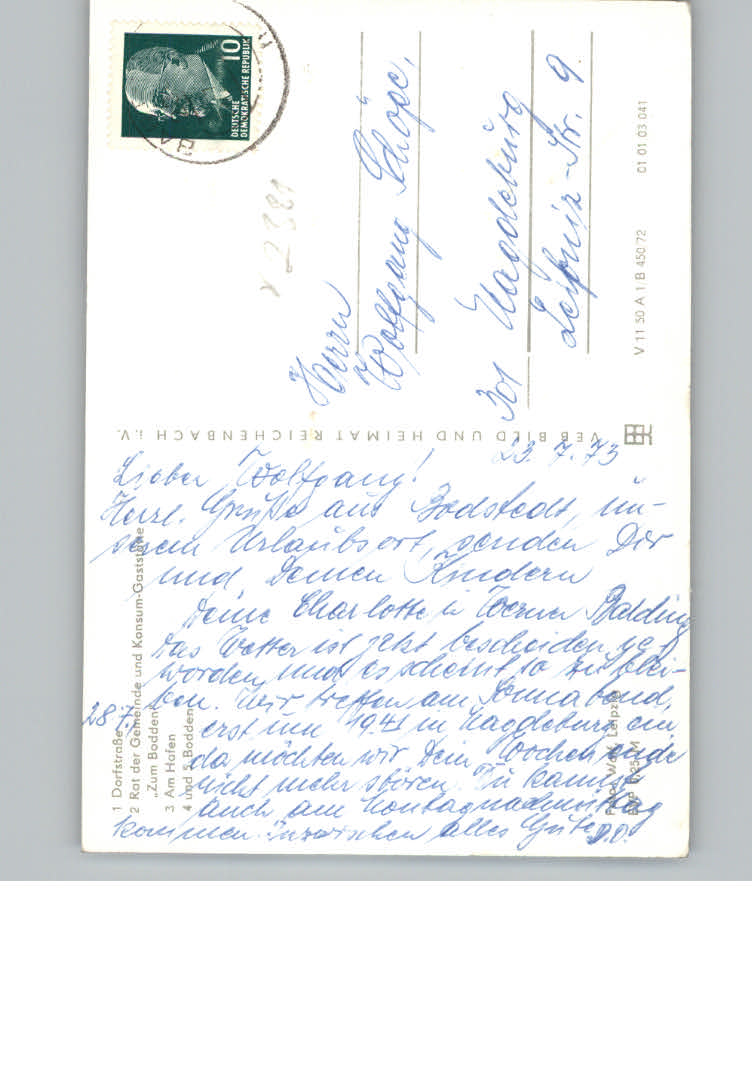 10
DEUTSCHE
DEMOKRATISCHE REPUBLIK
Herrn
Wolfgang Schöpe,
301 Magdeburg
Leibniz-Str. 9
V 11 50 A 1/B 450/72 01 01 03 041
VEB BILD UND HEIMAT REICHENBACH i.V.
23.7.73
Lieber Wolfgang!
Herzl. Grüße aus Bodstedt, un-
serem Urlaubsort, senden Dir
und Deinen Kindern
Deine Charlotte u Werner Balding
Das Wetter ist jetzt bescheiden ge-
worden und es scheint so zu blei-
ben. Wir treffen am Sonnabend,
28.7., erst um 19.41 in Magdeburg ein
da möchten wir Dein Wochenende
nicht mehr stören. Du kannst
auch am Montagnachmittag
kommen. Inzwischen alles Gute D.O.
1 Dorfstraße
2 Rat der Gemeinde und Konsum-Gaststätte
„Zum Bodden“
3 Am Hafen
4 und 5 Bodden
Leipzig